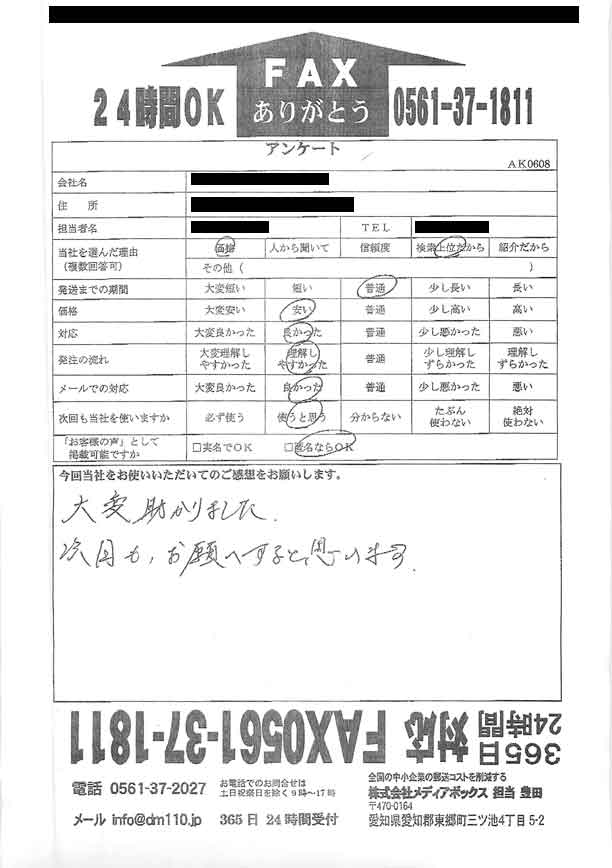 FAX
ありがとう
24時間OK
0561-37-1811
アンケート
AK0608
会社名
住 所
担当者名 TEL
当社を選んだ理由 (複数回答可) 価格 人から聞いて 信頼度 検索上位だから 紹介だから
その他( )
発送までの期間 大変短い 短い 普通 少し長い 長い
価格 大変安い 安い 普通 少し高い 高い
対応 大変良かった 良かった 普通 少し悪かった 悪い
発注の流れ 大変理解しやすかった 理解しやすかった 普通 少し理解しずらかった 理解しずらかった
メールでの対応 大変良かった 良かった 普通 少し悪かった 悪い
次回も当社を使いますか 必ず使う 使うと思う 分からない たぶん使わない 絶対使わない
「お客様の声」として掲載可能ですか □実名でOK □匿名ならOK
今回当社をお使いいただいてのご感想をお願いします。
大変助かりました.
次回も、お願いすると思います.
365日
24時間
対応
FAX0561-37-1811
電話 0561-37-2027
お電話でのお問合せは
土日祝祭日を除く9時～17時
メール info@dm110.jp
365日24時間受付
全国の中小企業の郵送コストを削減する
株式会社メディアボックス 担当 豊田
〒470-0164
愛知県愛知郡東郷町三ツ池4丁目5-2